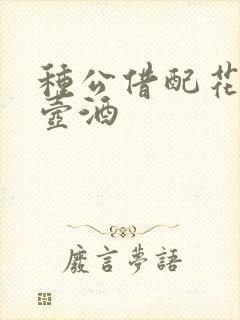 種公借配花
壺酒
廢言夢語